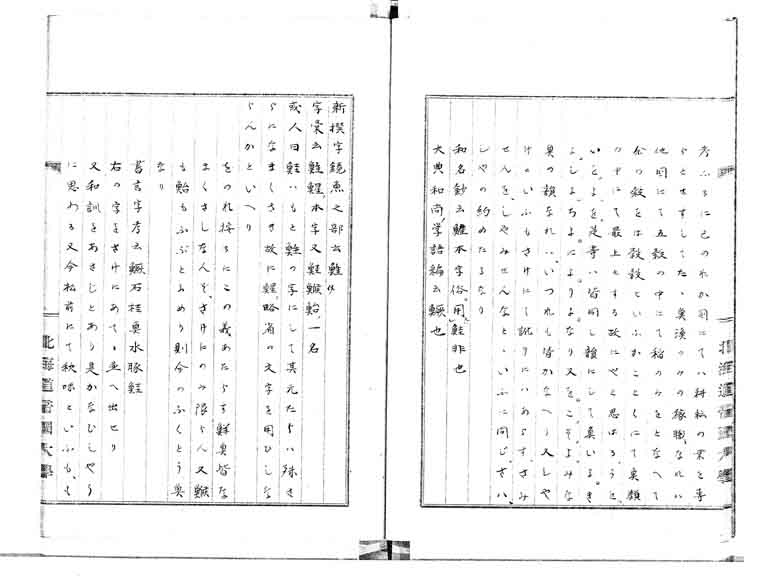 考ふるに己のれか国にてハ耕転の業を専
らとせすしてたゝ奥漁のミの稼職なれハ
他国にて五穀の中にて稲のミをとなへて
余の穀をは穀穀といふかことくにて奥類
の中にて最上とする故にやと思はるゝを
いをよを是等ハ皆同し韻にして奥いよき
よしよちよによりよなり又をこそよみな
奥の類なれハいつれも皆かなへり又しや
けのいふもさけにて訛りにハあらすさみ
せんをしやみせんなとゝいふに同しさハ
しやの約めたるなり
和名鈔云鮏本字俗用鮭非也
大典和尚学語編云鱖也
新撰字鏡魚之部云鮏
字彙云鮏鯹本字又鯹鯸鮐一名
或人曰鮭ハもと鮏の字にして其元たちハ殊さ
らになまくさき故に鯹略省の文字を用ひしな
らんかといへり
をのれ按るにこの義あたらす鮮奥皆な
まくさしなんそさけにのみ限らん又鯸
も鮐もふぶとよめり則今のふくとう奥
なり
書言字考云鱖石桂奥水豚鮭
右の字をさけにあてゝ並へ出せり
又和訓をあさじとあり是かなひしやう
に思わる又今松前にて秋味といふも、も
北海道帝国大学
北海道帝国大学